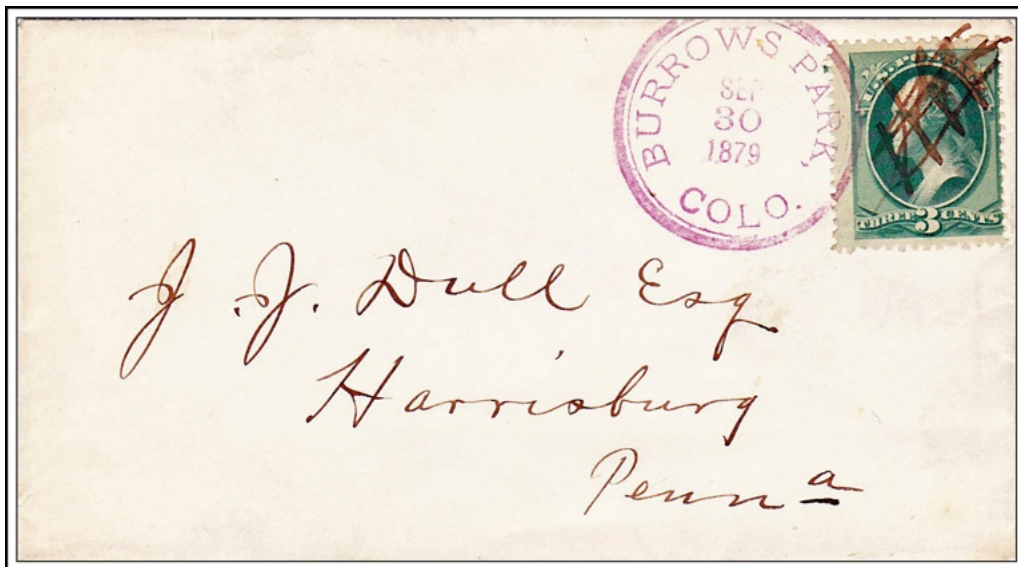 BURROWS PARK,
SEP
30
1879
COLO.
U.S. POSTAGE
THREE 3 CENTS
J. J. Dull Esq
Harrisburg
Penna